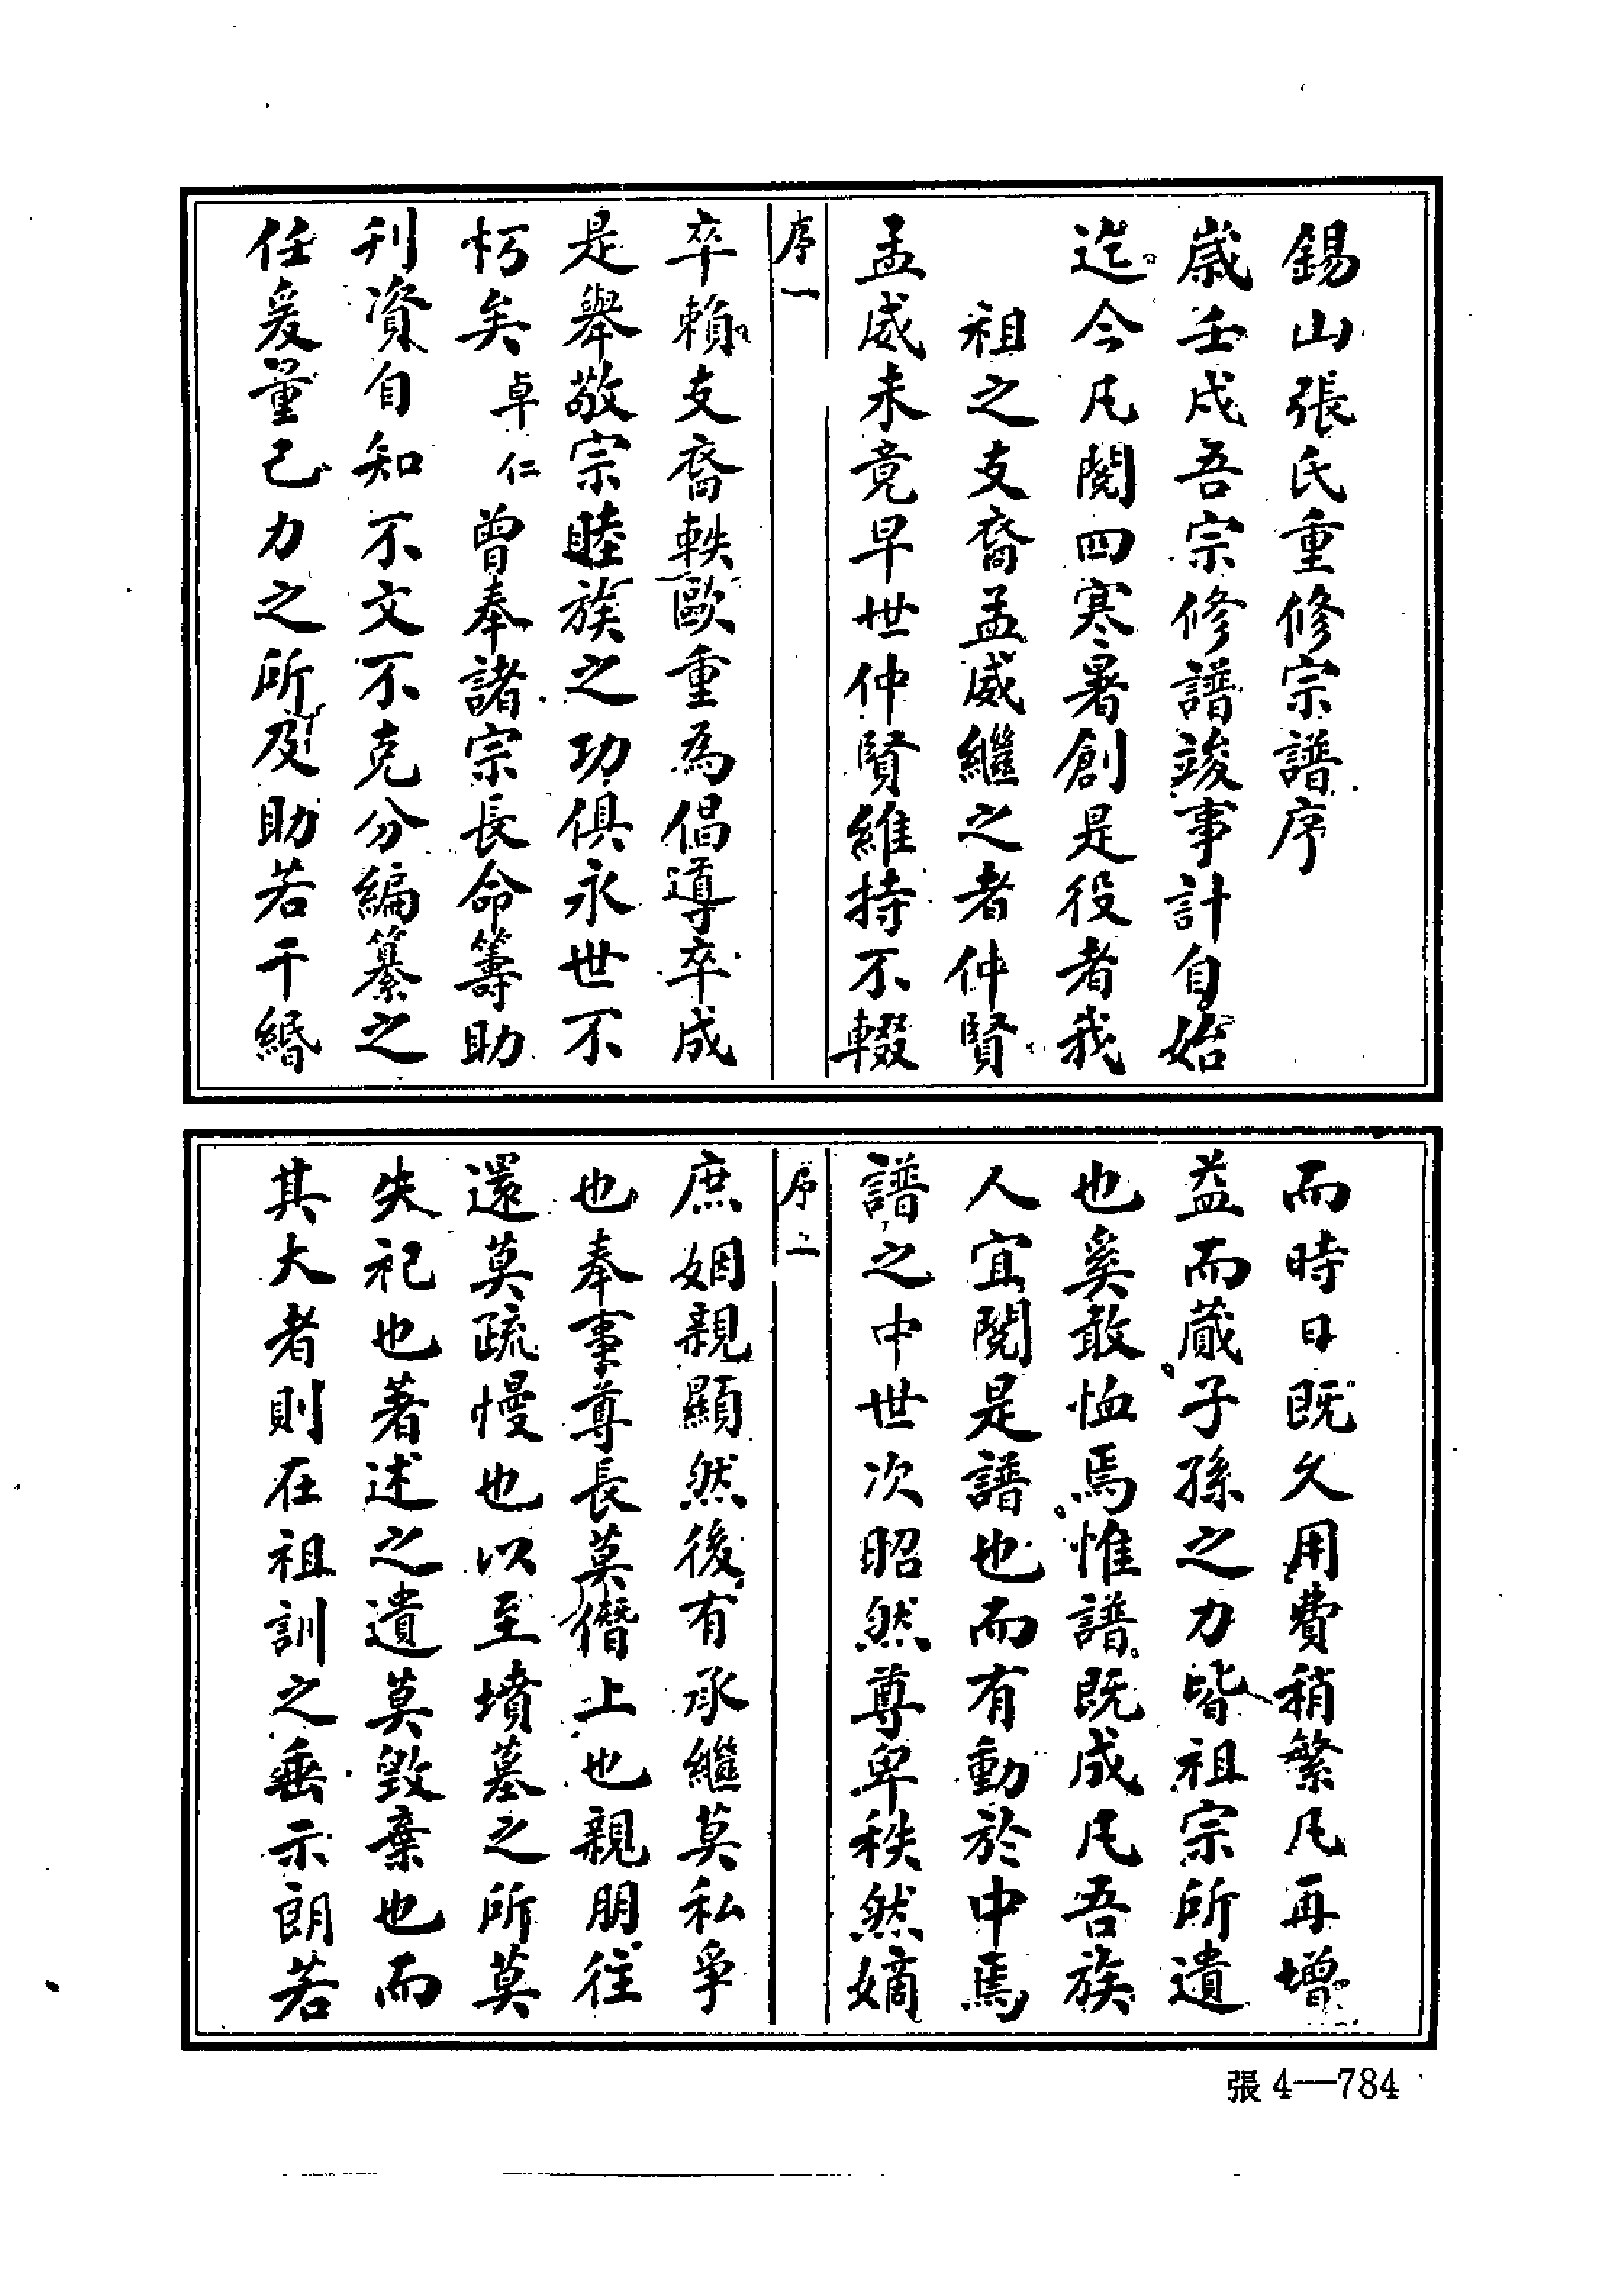 錫山張氏重修宗譜序
歲壬戌吾宗修譜竣事計自始
迄今凡閱四寒暑創是役者我
祖之支裔孟威繼之者仲賢
孟威未竟早世仲賢維持不輟
序一
卒賴支裔軼歐重為倡導卒成
是舉敬宗睦族之功俱永世不
朽矣卓仁曾奉諸宗長命籌助
刊資自知不文不克分編纂之
任爰量己力之所及助若干緡
而時日既久用費稍繁凡再增
益而蕆子孫之力皆祖宗所遺
也奚敢恤焉惟譜既成凡吾族
人宜閱是譜也而有動於中焉
譜之中世次昭然尊卑秩然嫡
序二
庶姻親顯然後有承繼莫私爭
也奉事尊長莫僭上也親朋往
還莫疏慢也以至墳墓之所莫
失祀也著述之遺莫毀棄也而
其大者則在祖訓之垂示朗若
張4—784